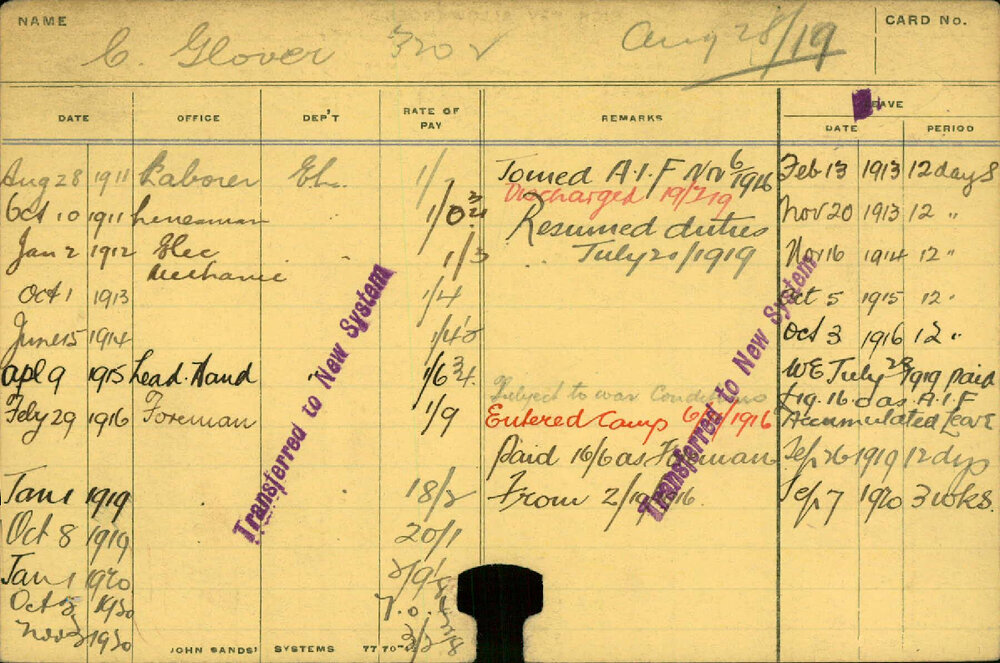 NAME C. Glover Aug 28/19 CARD No.
DATE OFFICE DEP'T RATE OF PAY REMARKS LEAVE DATE PERIOD
Aug 28 1911 Laborer El. 1/ Joined A.I.F Nov 6/1916 Feb 13 1913 12 days
Discharged 19/7/19
Oct 10 1911 Linesman 1/0 3/4 Resumed duties Nov 20 1913 12 "
Jan 2 1912 Elec Mechanic 1/3 July 20/1919 Nov 16 1914 12 "
Oct 1 1913 1/4 Oct 5 1915 12 "
June 15 1914 1/4½ Oct 3 1916 12 "
Apl 9 1915 Lead. Hand " 1/6 3/4 WE July 1919 paid
Subject to war Conditions as A.I.F
Feby 29 1916 Foreman 1/9 Entered Camp 1916 Accumulated Leave
Paid 16/6 as Foreman Sep 26 1919 12 dys
Jan 1 1919 18/2 From Sep 7 1920 3 wks.
Oct 8 1919 20/1
Jan 1 1920
Oct 1920
Nov 1920
Transferred to New System
Transferred to New System
JOHN SANDS' SYSTEMS